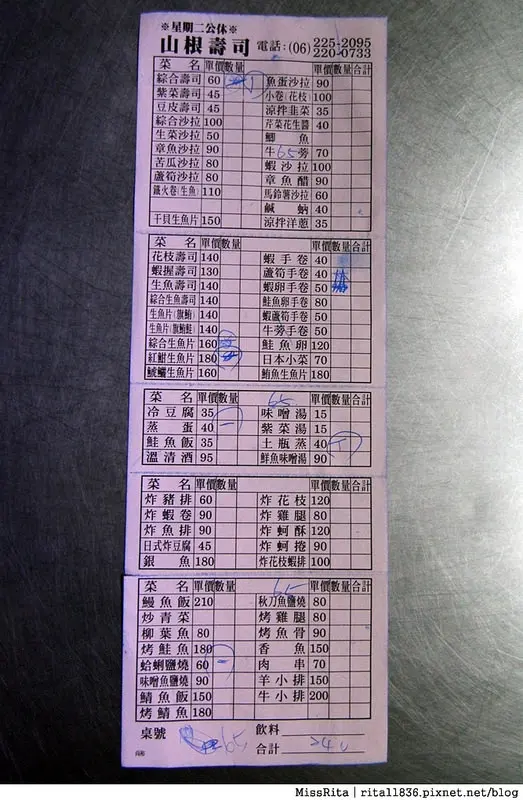 ※星期二公休※
山根壽司 電話:(06) 225-2095
220-0733
菜 名 單價 數量 單價 數量 合計
綜合壽司 60 魚蛋沙拉 90
紫菜壽司 45 小卷(花枝) 100
豆皮壽司 45 涼拌韭菜 35
綜合沙拉 100 芹菜花生醬 40
生菜沙拉 50 鯽 魚
章魚沙拉 90 牛 蒡 70
苦瓜沙拉 80 蝦沙拉 100
蘆筍沙拉 80 章魚醋 90
鐵火卷(生魚) 110 馬鈴薯沙拉 60
鹹 蜊 40
干貝生魚片 150 涼拌洋蔥 35
菜 名 單價 數量 單價 數量 合計
花枝壽司 140 蝦手卷 40
蝦握壽司 130 蘆筍手卷 40
生魚壽司 140 蝦卵手卷 50
綜合生魚壽司 140 鮭魚卵手卷 80
生魚片(旗鮪) 140 蝦蘆筍手卷 50
生魚片(旗鮪鮭) 140 牛蒡手卷 50
綜合生魚片 160 鮭魚卵 120
紅魽生魚片 180 日本小菜 70
生魚片 160 鮪魚生魚片 180
菜 名 單價 數量 65 單價 數量 合計
冷豆腐 35 味噌湯 15
蒸 蛋 40 一 紫菜湯 15
鮭魚飯 35 土瓶蒸 40
溫清酒 95 鮮魚味噌湯 90
菜 名 單價 數量 單價 數量 合計
炸豬排 60 炸花枝 120
炸蝦卷 90 炸雞腿 80
炸魚排 90 炸蚵酥 120
日式炸豆腐 45 炸蚵捲 90
銀 魚 180 炸花枝蝦排 100
菜 名 單價 數量 65 單價 數量 合計
鰻魚飯 210 秋刀魚鹽燒 80
炒青菜 烤雞腿 80
柳葉魚 80 烤魚骨 90
烤鮭魚 180 香 魚 150
蛤蜊鹽燒 60 一 肉 串 70
味噌魚鹽燒 90 羊小排 150
鯖魚飯 150 牛小排 200
烤鯖魚 180
桌號 65 飲料
合計 240
MissRita | rita11836.pixnet.net/blog